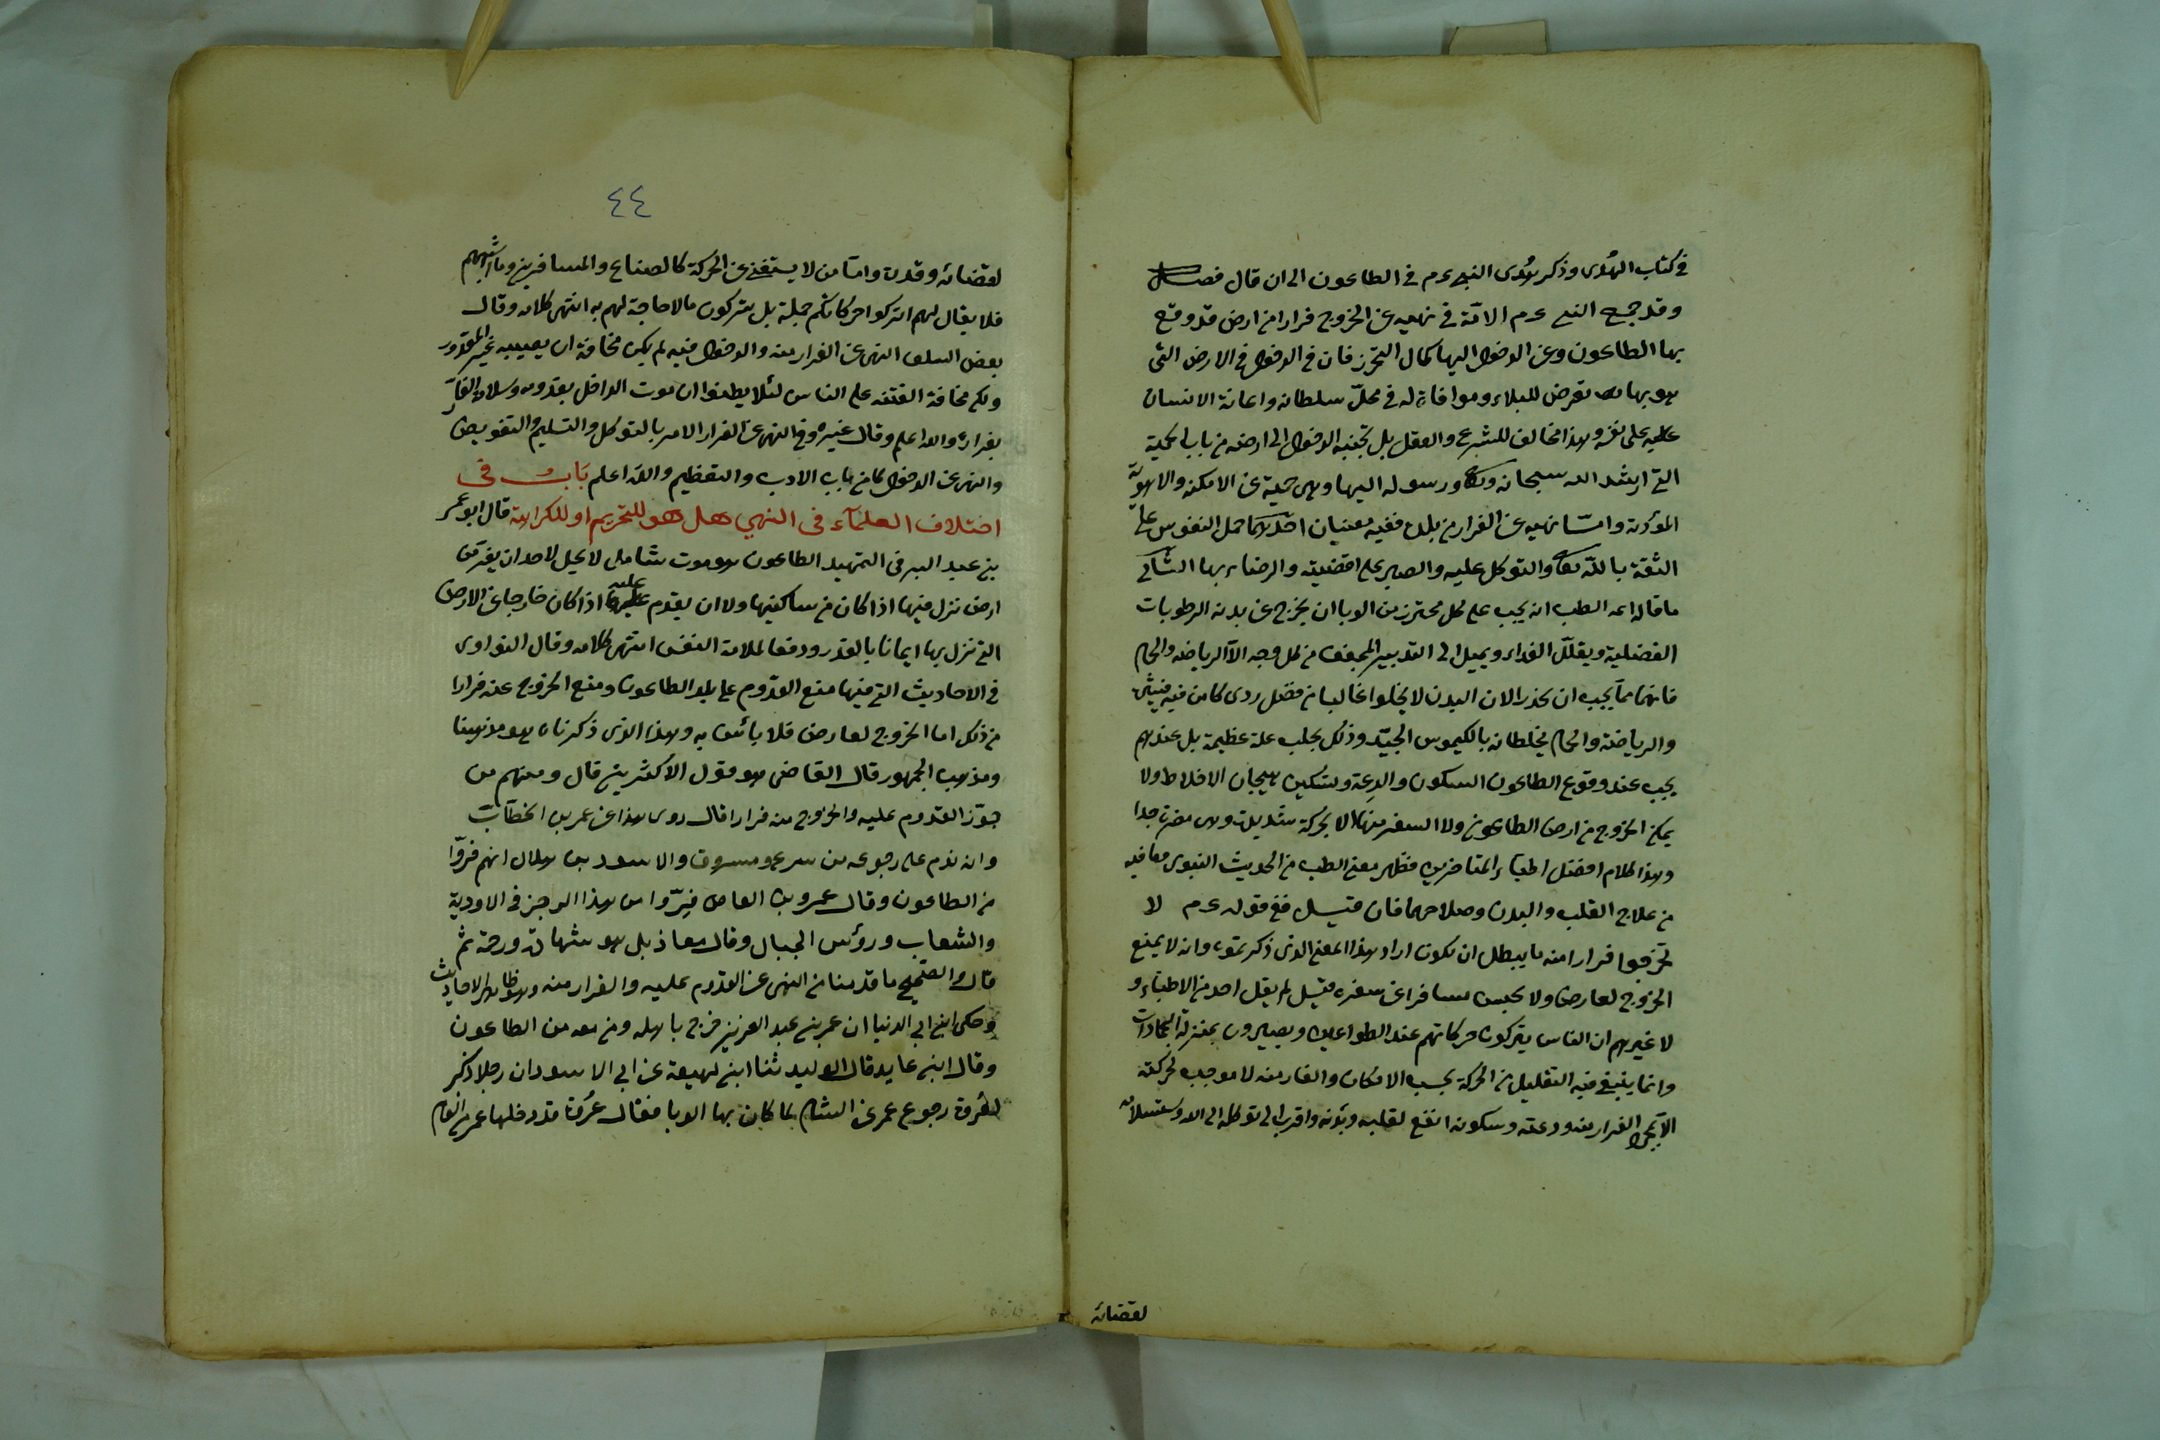 في كتاب الهُدى وذكر هُدى النبي عم في الطاعون الى ان قال فصل
وقد جمع النبي عم الامّة في نهيه عن الخروج فرارا من ارض قد وقع
بها الطاعون وعن الدخول اليها كمال التحرّز فان في الدخول في الارض التي
هو بها تعرض للبلاء وموافاة له في محلّ سلطانه واعانة الانسان
عليه على نفسه وهذا مخالف للشرع والعقل بل تجنبه الدخول الى ارضه من باب الحمية
التي ارشد الله سبحانه وتعا ورسوله اليها وهي حمية عن الامكنة والاهويّة
المؤذية وامّا نهيه عن الفرار من بلده ففيه معنيان احدهما حمل النفوس على
الثقة بالله تعا والتوكل عليه والصبر على اقضيته والرضاء بها الثاني
ما قاله ائمة الطب انه يجب على كل محترز من الوبا ان يخرج عن بدنه الرطوبات
الفضلية ويقلّل الغذاء ويميل الى التدبير المجفف من كل وجه الّا الرياضة والحمام
فانهما ممّا يجب ان يحذر الان البدن لا يخلوا غالبا من فضل ردى كامن فيه فيثيره
والرياضة والحمام يخلطانه بالكيموس الجيّد وذلك يجلب علة عظيمة بل عندهم
يجب عند وقوع الطاعون السكون والدِعة وتسكين هيجان الاخلاط ولا
يمكن الخروج من ارض الطاعون ولا السفر منها الا بحركة شديدة وهي مضرة جدا
وهذا كلام افضل اطباء المتاخرين فظهر معنى الطب من الحديث النبوى وما فيه
من علاج القلب والبدن وصلاحهما فان قيل ففي قوله عم لا
تخرجوا فرارا منه ما يبطل ان يكون اراد هذا المعنى الذي ذكرتموه وانه لا يمنع
الخروج لعارض ولا يحبس مسافرا عن سفره قيل لم يقل احد من الاطباء و
لا غيرهم ان الناس يتركون حركاتهم عند الطواعين ويصيرون بمنزلة الجمادات
وانما ينبغي فيه التقليل من الحركة بحسب الامكان والفار منه لا موجب لحركته
الّا مجرد الفرار منه ودعته وسكونه انفع لقلبه وبدنه واقرب الى توكله الى الله واستسلامه
لقضائه
٤٤
لقضائه وقدره وامّا من لا يستغني عن الحركة كالصناع والمسافرين وما اشبههم
فلا يقال لهم اتركوا حركاتكم جملة بل يتركون ما لا حاجة لهم به انتهى كلامه وقال
بعض السلف النهى عن الفرار منه والدخول فيه لم يكن مخافة ان يصيبه غير المقدور
ولكن مخافة الفتنة على الناس لئلا يظنوا ان موت الداخل بقدومه وسلامة الفارّ
بفراره والله اعلم وقال غيره وفي النهى عن الفرار الامر بالتوكل والتسليم والتفويض
والنهى عن الدخول كما من باب الادب والتعظيم والله اعلم بَاب في
اختلاف العلمآء في النهي هل هو للتحريم او للكراهة قال ابو عمر
بن عبد البر في التمهيد الطاعون هو موت شامل لا يحل لاحد ان يفرّ من
ارض نزل فيها اذا كان من ساكنيها ولا ان يقدم عليه اذا كان خارجا عن الارض
التي نزل بها ايمانا بالقدر ودفعا لملامة النفس انتهى كلامه وقال النواوى
في الاحاديث التي فيها منع القدوم على بلد الطاعون ومنع الخروج عنه فرارا
من ذلك اما الخروج لعارض فلا بائس به وهذا الذى ذكرناه هو مذهبنا
ومذهب الجمهور قال القاضى هو قول الاكثرين قال ومنهم من
جوّز القدوم عليه والخروج منه فرارا قال روى هذا عن عمر بن الخطآب
وانه ندم على رجوعه من سرع ومسروق والاسود بن هلال انهم فرّوا
من الطاعون وقال عمرو بن العاص فِرّوا من هذا الرجز في الاودية
والشعاب ورؤس الجبال وقال معاذ بل هو شهادة ورحمة ثم
قال والصحيح ما قدمنا من النهى عن القدوم عليه والفرار منه وهو ظاهر الاحاديث
وحكى ابن ابي الدنيا ان عمر بن عبد العزيز خرج باهله ومن معه من الطاعون
وقال ابن عايد قال الوليد ثنا ابن لهيعة عن ابي الاسود ان رجلا ذكر
لعُروة رجوع عمر عن الشام لما كان بها الوبا فقال عُروة قد دخلها عمر من العام